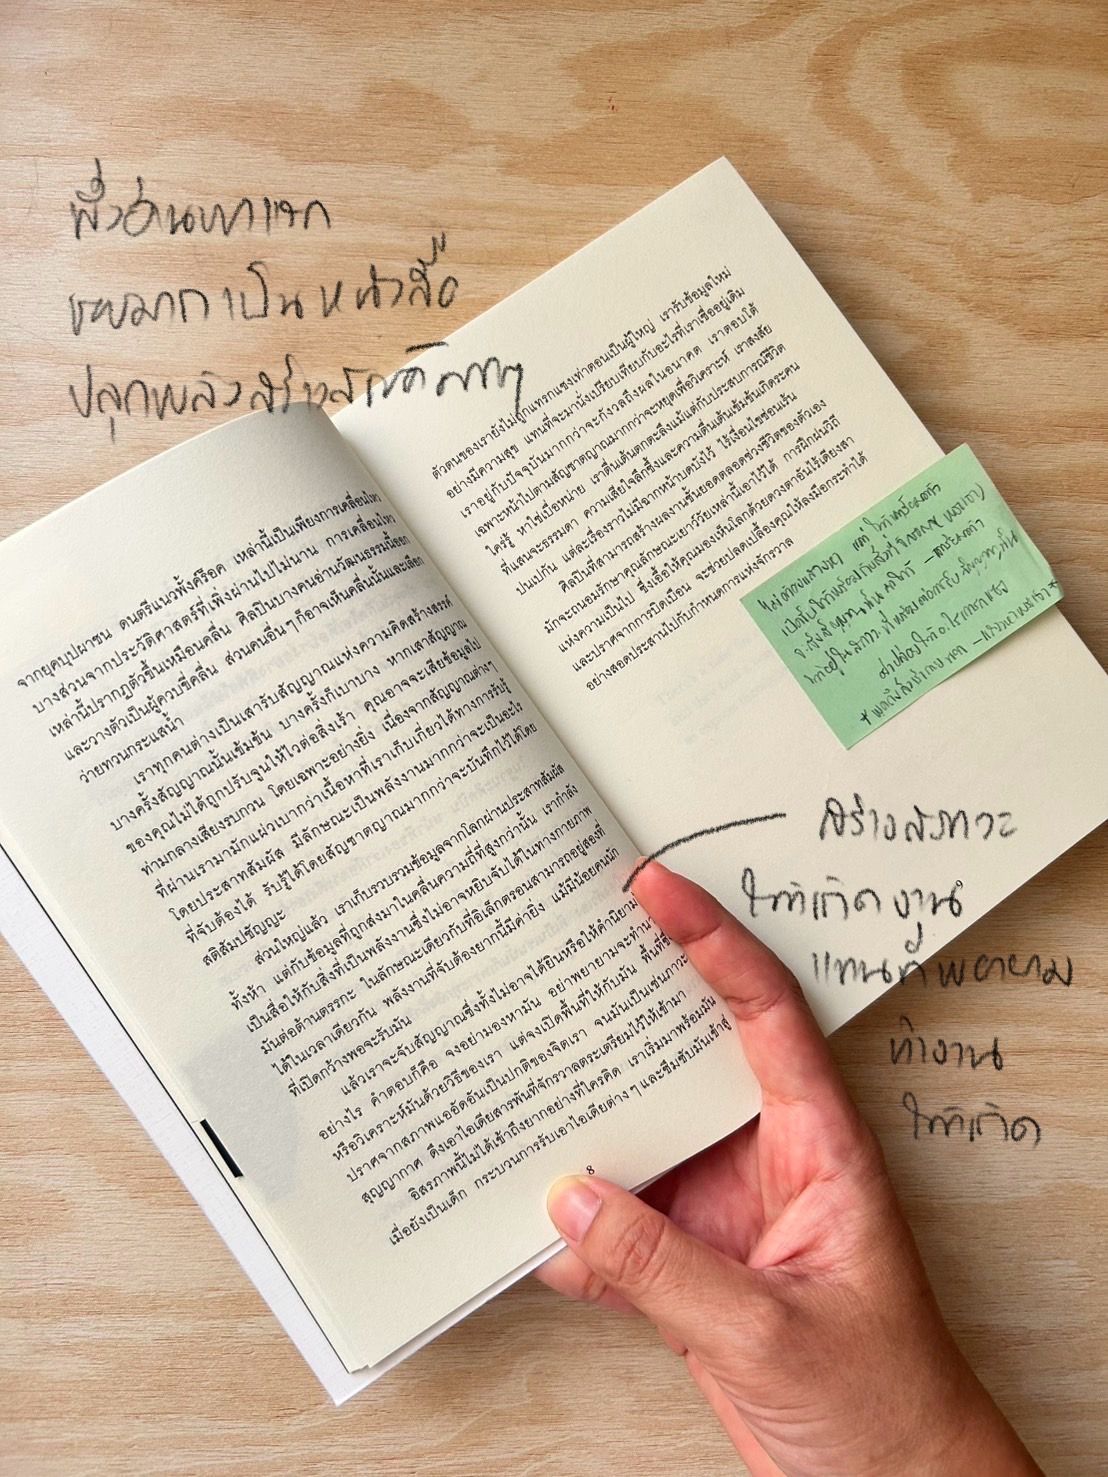 พึ่งอ่านบทแรก
ชอบมาก เป็น หนังสือ
ปลุกพลังสร้างสรรค์
จากยุคบุปผาชน ดนตรีแนวพังก์ร็อค เหล่านี้เป็นเพียงการเคลื่อนไหว
บางส่วนจากประวัติศาสตร์ที่เพิ่งผ่านไปไม่นาน การเคลื่อนไหว
เหล่านี้ปรากฏตัวขึ้นเหมือนคลื่น ศิลปินบางคนอ่านวัฒนธรรมนี้ออก
และวางตัวเป็นผู้ควบขี่คลื่น ส่วนคนอื่นๆ ก็อาจเห็นคลื่นนั้นและเลือก
ว่ายทวนกระแสน้ำ
เราทุกคนต่างเป็นเสารับสัญญาณแห่งความคิดสร้างสรรค์
บางครั้งสัญญาณนั้นเข้มข้น บางครั้งก็เบาบาง หากเสาสัญญาณ
ของคุณไม่ได้ถูกปรับจูนให้ไวต่อสิ่งเร้า คุณอาจจะเสียข้อมูลไป
ท่ามกลางเสียงรบกวน โดยเฉพาะอย่างยิ่ง เนื่องจากสัญญาณต่างๆ
ที่ผ่านเรามามักแผ่วเบากว่าเนื้อหาที่เราเก็บเกี่ยวได้ทางการรับรู้
โดยประสาทสัมผัส มีลักษณะเป็นพลังงานมากกว่าจะเป็นอะไร
ที่จับต้องได้ รับรู้ได้โดยสัญชาตญาณมากกว่าจะบันทึกไว้ได้โดย
สติสัมปชัญญะ
ส่วนใหญ่แล้ว เราเก็บรวบรวมข้อมูลจากโลกผ่านประสาทสัมผัส
ทั้งห้า แต่กับข้อมูลที่ถูกส่งมาในคลื่นความถี่ที่สูงกว่านั้น เรากำลัง
เป็นสื่อให้กับสิ่งที่เป็นพลังงานซึ่งไม่อาจหยิบจับได้ในทางกายภาพ
มันต่อต้านตรรกะ ในลักษณะเดียวกับที่อิเล็กตรอนสามารถอยู่สองที่
ได้ในเวลาเดียวกัน พลังงานที่จับต้องยากนี้มีค่ายิ่ง แม้มีน้อยคนนัก
ที่เปิดกว้างพอจะรับมัน
แล้วเราจะจับสัญญาณซึ่งทั้งไม่อาจได้ยินหรือให้คำนิยาม
อย่างไร คำตอบก็คือ จงอย่ามองหามัน อย่าพยายามจะทำนา
หรือวิเคราะห์มันด้วยวิธีของเรา แต่จงเปิดพื้นที่ให้กับมัน พื้นที่ซึ่
ปราศจากสภาพแออัดอันเป็นปกติของจิตเรา จนมันเป็นเช่นภาวะ
สุญญากาศ ดึงเอาไอเดียสารพันที่จักรวาลตระเตรียมไว้ให้เข้ามา
อิสรภาพนี้ไม่ได้เข้าถึงยากอย่างที่ใครคิด เราเริ่มมาพร้อมมัน
เมื่อยังเป็นเด็ก กระบวนการรับเอาไอเดียต่างๆ และซึมซับมันเข้าสู่
8
ตัวตนของเรายังไม่ถูกแทรกแซงเท่าตอนเป็นผู้ใหญ่ เรารับข้อมูลใหม่
อย่างมีความสุข แทนที่จะมานั่งเปรียบเทียบกับอะไรที่เราเชื่ออยู่เดิม
เราอยู่กับปัจจุบันมากกว่าจะกังวลถึงผลในอนาคต เราตอบโต้
เฉพาะหน้าไปตามสัญชาตญาณมากกว่าจะหยุดเพื่อวิเคราะห์ เราสงสัย
ใคร่รู้ หาใช่เบื่อหน่าย เราตื่นเต้นตกตะลึงแม้แต่กับประสบการณ์ชีวิต
ที่แสนจะธรรมดา ความเสียใจลึกซึ้งและความตื่นเต้นเข้มข้นเกิดระคน
ปนเปกัน แต่ละเรื่องราวไม่มีฉากหน้าบดบังไว้ ไร้เงื่อนไขซ่อนเร้น
ศิลปินที่สามารถสร้างผลงานชั้นยอดตลอดช่วงชีวิตของตัวเอง
มักจะถนอมรักษาคุณลักษณะเยาว์วัยเหล่านี้เอาไว้ได้ การฝึกฝนวิถี
แห่งความเป็นไป ซึ่งเอื้อให้คุณมองเห็นโลกด้วยดวงตาอันไร้เดียงสา
และปราศจากการบิดเบือน จะช่วยปลดเปลื้องคุณให้ลงมือกระทำได้
อย่างสอดประสานไปกับกำหนดการแห่งจักรวาล
สร้างสภาวะ
ให้เกิด งาน
แทนที่พยายาม
ทำงาน
ให้เกิด